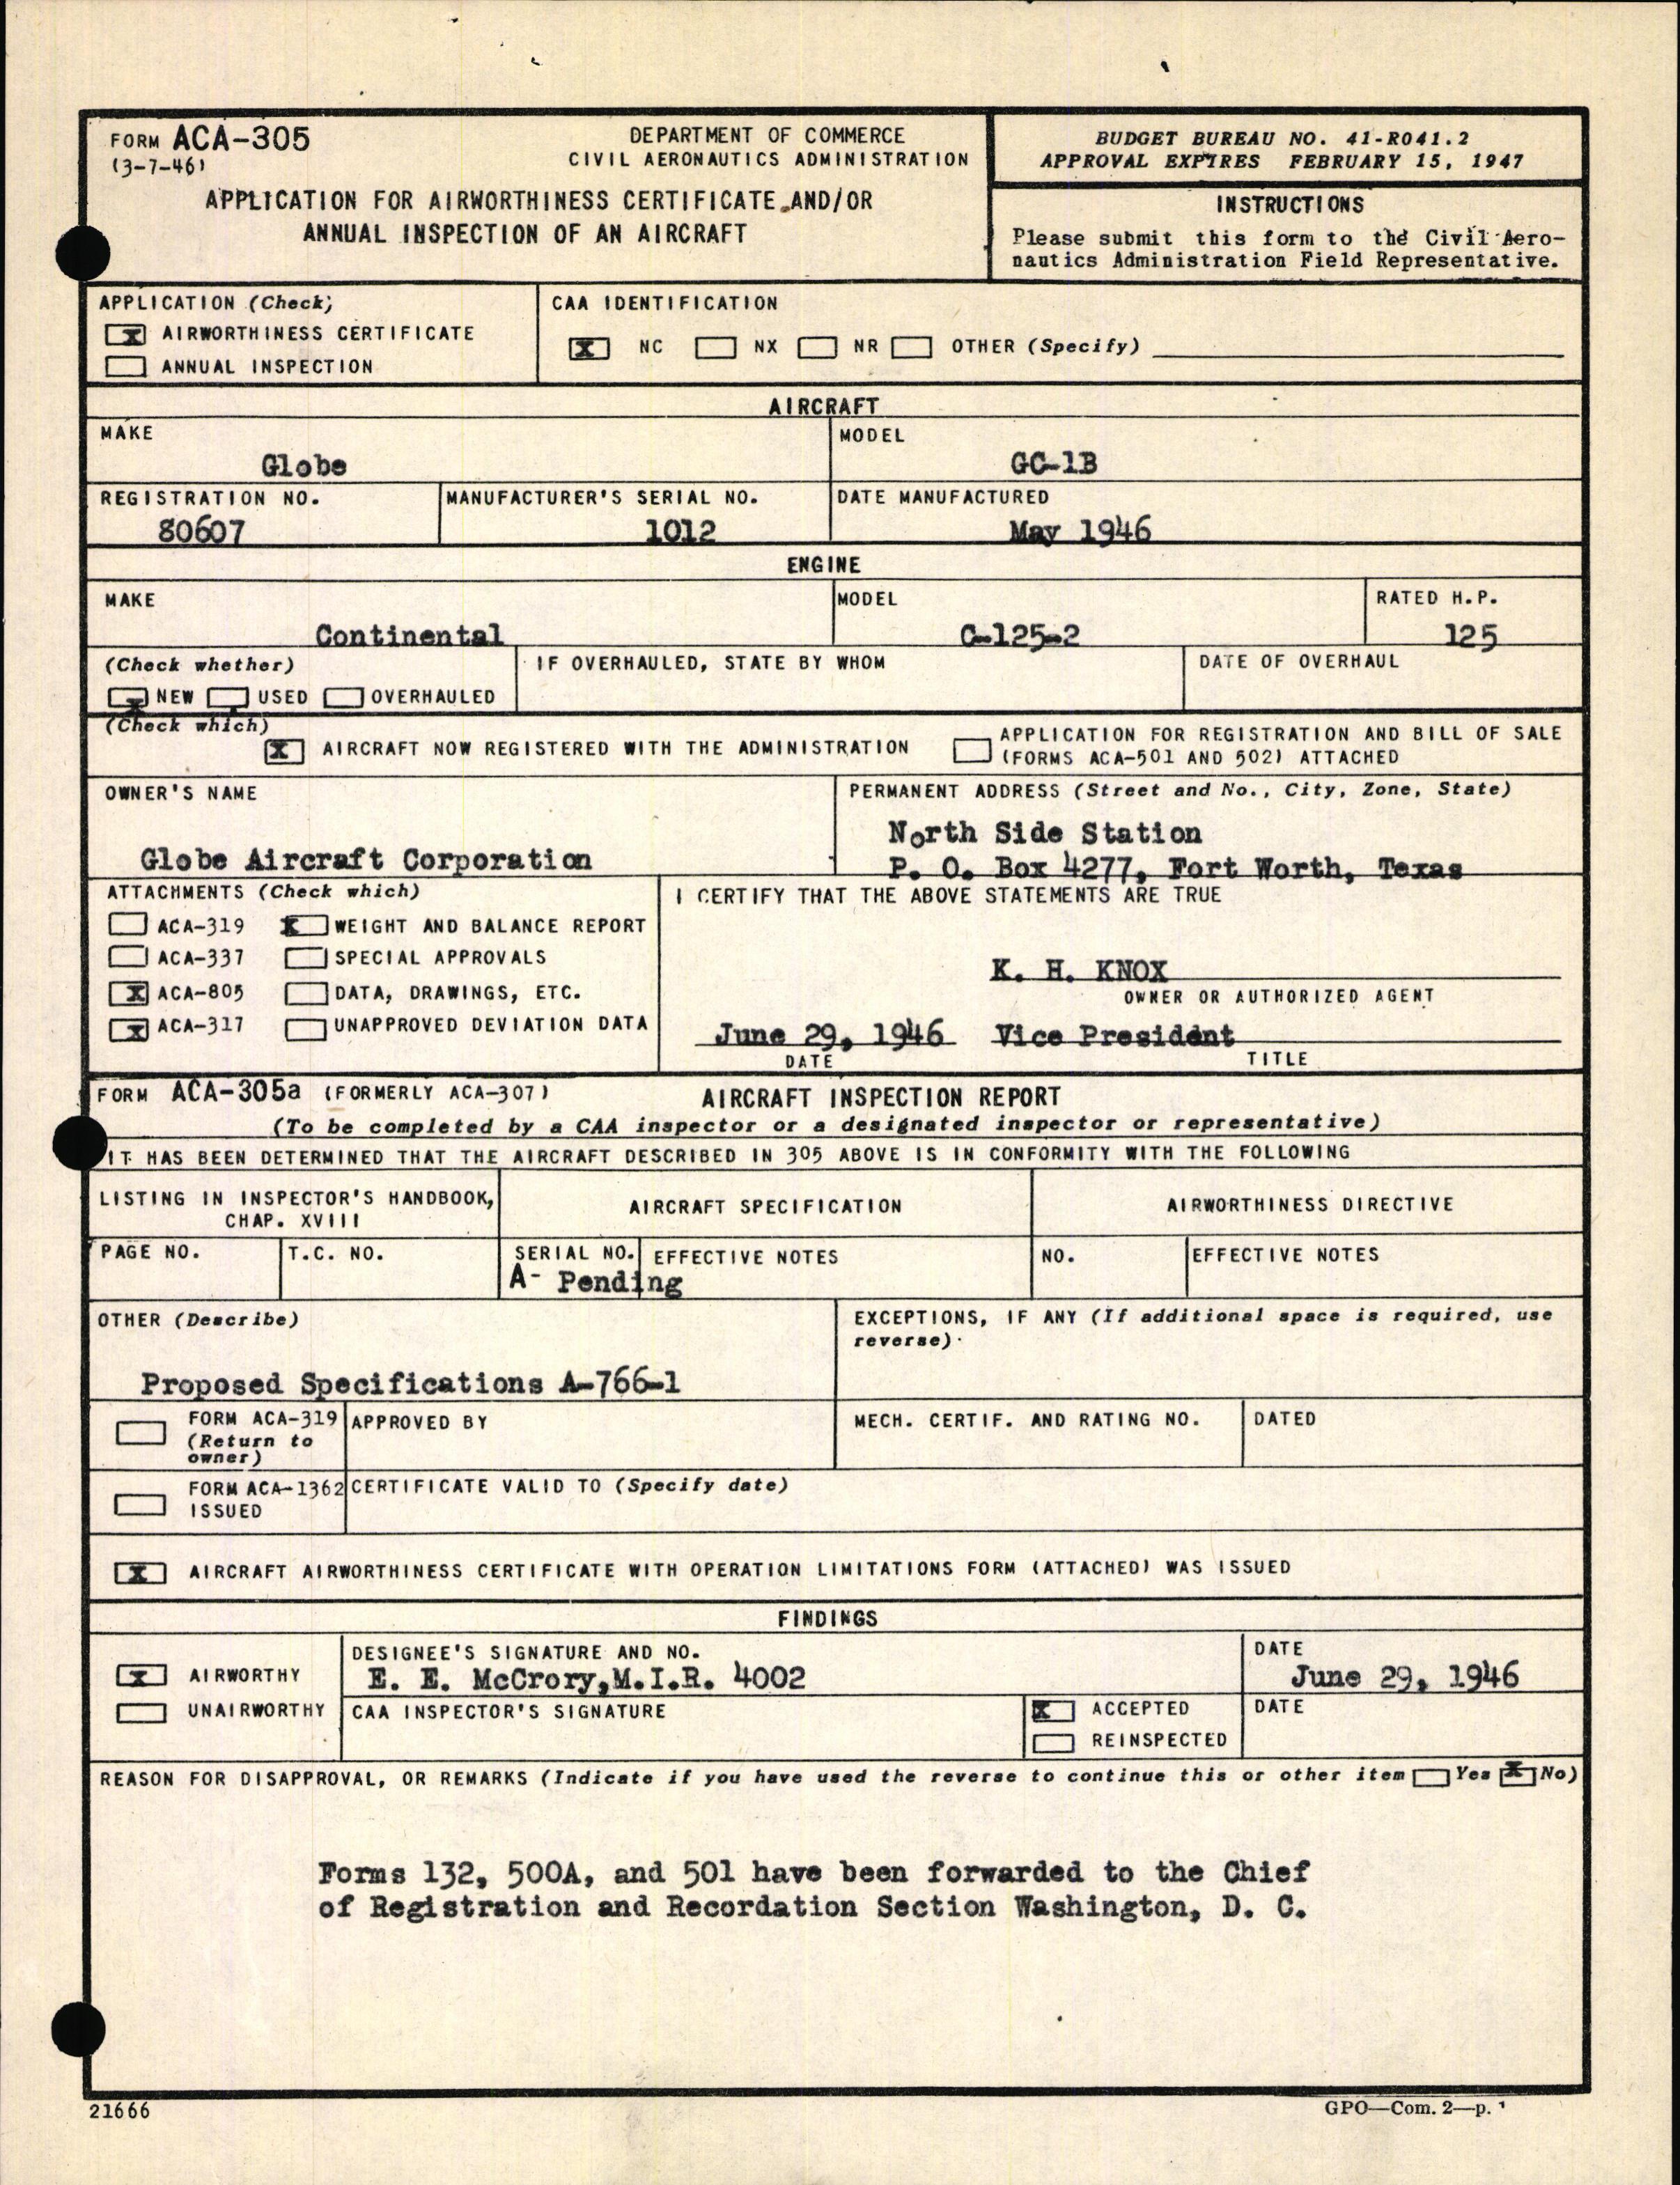 FORM ACA-305
(3-7-46)
DEPARTMENT OF COMMERCE
CIVIL AERONAUTICS ADMINISTRATION
APPLICATION FOR AIRWORTHINESS CERTIFICATE AND/OR
ANNUAL INSPECTION OF AN AIRCRAFT
BUDGET BUREAU NO. 41-R041.2
APPROVAL EXPIRES FEBRUARY 15, 1947
INSTRUCTIONS
Please submit this form to the Civil Aero-
nautics Administration Field Representative.
APPLICATION (Check)
X AIRWORTHINESS CERTIFICATE
ANNUAL INSPECTION
CAA IDENTIFICATION
X NC NX NR OTHER (Specify)
AIRCRAFT
MAKE
Globe
MODEL
GC-1B
REGISTRATION NO.
80607
MANUFACTURER'S SERIAL NO.
1012
DATE MANUFACTURED
May 1946
ENGINE
MAKE
Continental
MODEL
C-125-2
RATED H.P.
125
(Check whether)
X NEW USED OVERHAULED
IF OVERHAULED, STATE BY WHOM
DATE OF OVERHAUL
(Check which)
X AIRCRAFT NOW REGISTERED WITH THE ADMINISTRATION
APPLICATION FOR REGISTRATION AND BILL OF SALE
(FORMS ACA-501 AND 502) ATTACHED
OWNER'S NAME
Globe Aircraft Corporation
PERMANENT ADDRESS (Street and No., City, Zone, State)
North Side Station
P. O. Box 4277, Fort Worth, Texas
ATTACHMENTS (Check which)
ACA-319 X WEIGHT AND BALANCE REPORT
ACA-337 SPECIAL APPROVALS
X ACA-805 DATA, DRAWINGS, ETC.
X ACA-317 UNAPPROVED DEVIATION DATA
I CERTIFY THAT THE ABOVE STATEMENTS ARE TRUE
K. H. KNOX
OWNER OR AUTHORIZED AGENT
June 29, 1946 Vice President
DATE TITLE
FORM ACA-305a (FORMERLY ACA-307) AIRCRAFT INSPECTION REPORT
(To be completed by a CAA inspector or a designated inspector or representative)
IT HAS BEEN DETERMINED THAT THE AIRCRAFT DESCRIBED IN 305 ABOVE IS IN CONFORMITY WITH THE FOLLOWING
LISTING IN INSPECTOR'S HANDBOOK,
CHAP. XVIII
AIRCRAFT SPECIFICATION
AIRWORTHINESS DIRECTIVE
PAGE NO.
T.C. NO.
SERIAL NO.
EFFECTIVE NOTES
A- Pending
NO.
EFFECTIVE NOTES
OTHER (Describe)
Proposed Specifications A-766-1
EXCEPTIONS, IF ANY (If additional space is required, use
reverse)
FORM ACA-319
(Return to
owner)
APPROVED BY
MECH. CERTIF. AND RATING NO.
DATED
FORM ACA-1362
ISSUED
CERTIFICATE VALID TO (Specify date)
X AIRCRAFT AIRWORTHINESS CERTIFICATE WITH OPERATION LIMITATIONS FORM (ATTACHED) WAS ISSUED
FINDINGS
X AIRWORTHY
UNAIRWORTHY
DESIGNEE'S SIGNATURE AND NO.
E. E. McCrory,M.I.R. 4002
DATE
June 29, 1946
CAA INSPECTOR'S SIGNATURE
X ACCEPTED
REINSPECTED
DATE
REASON FOR DISAPPROVAL, OR REMARKS (Indicate if you have used the reverse to continue this or other item Yes X No)
Forms 132, 500A, and 501 have been forwarded to the Chief
of Registration and Recordation Section Washington, D. C.
21666
GPO—Com. 2—p.